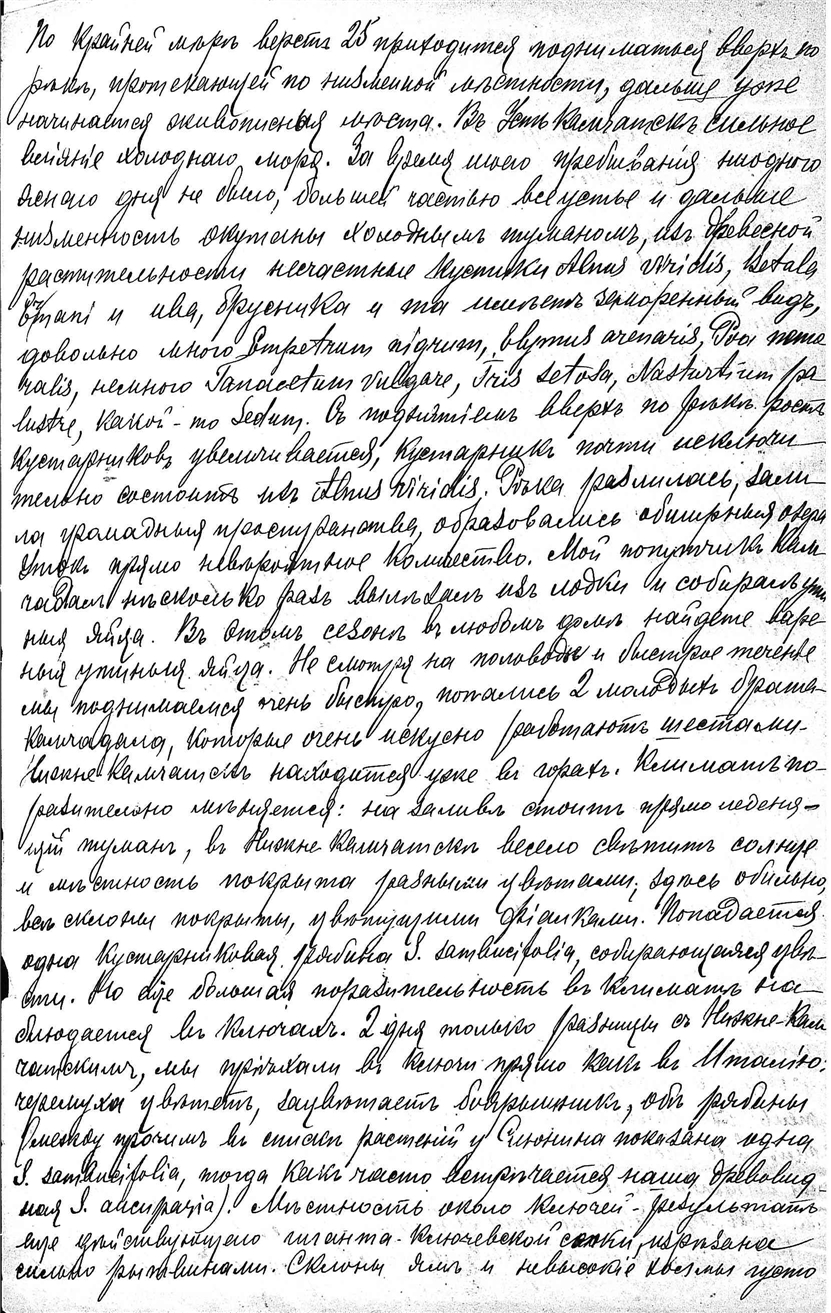 По крайней мѣрѣ верстъ 25 приходится подниматься вверхъ по
рѣкѣ, протекающей по низменной мѣстности, дальше уже
начинается живописныя мѣста. Въ Усть Камчатскѣ сильное
вліянiе холоднаго моря. За время моего пребыванія ниодного
яснаго дня не было, большей частью все устье и дальше
низменность окутаны холоднымъ туманомъ, изъ древесной
растительности несчастные кустики Alnus viridis, Betula
Ermani и ива, брусника и та имѣетъ заморенный видъ,
довольно много Empetrum nigrum, Elymus arenaris, Poa
немного Tanacetum vulgare, Iris setosa, Nasturtium pa
lustre, какой-то Sedum. Съ поднятіемъ вверхъ по рѣкѣ ростъ
кустарниковъ увеличивается, кустарникъ почти исключи
тельно состоитъ изъ Alnus viridis. Рѣка разлилась, зали
ла громадныя пространства, образовались обширныя озера
Утокъ прямо невѣроятное количество. Мой попутчикъ Кам
чадалъ нѣсколько разъ вылѣзалъ изъ лодки и собиралъ ути
ныя яйца. Въ этомъ сезонѣ въ любомъ домѣ найдете варе
ныя утиныя яйца. Не смотря на половодье и быстрое теченье
мы поднимаемся очень быстро, попались 2 молодыхъ брата-
камчадала, которые очень искусно работаютъ шестами-
Нижне-Камчатскъ находится уже въ горахъ. Климатъ по-
разительно мѣняется: на заливѣ стоитъ прямо леденя-
щій туманъ, въ Нижне-Камчатскѣ весело свѣтитъ солнце
и мѣстность покрыта разными цвѣтами, здѣсь обильно,
всѣ склоны покрыты, цвѣтущими фіалками. Попадается
одна кустарниковая рябина S. sambucifolia, собирающаяся цвѣ-
сти. Но еще большая поразительность въ климатѣ на-
блюдается въ Ключахъ. 2 дня только разницы съ Нижне-Кам
чатскимъ, мы пріѣхали въ Ключи прямо какъ въ Италію:
черемуха цвѣтетъ, зацвѣтаетъ боярышникъ, обѣ рябины
(между прочимъ въ спискѣ растеній у Слюнина показана одна
S. sambucifolia, тогда какъ часто встрѣчается наша древовид
ная S. aucuparia). Мѣстность около Ключей - результатъ
еще дѣйствующего гиганта-Ключевской сопки, изрѣзана
сильно рытвинами. Склоны ямъ и невысокіе холмы густо